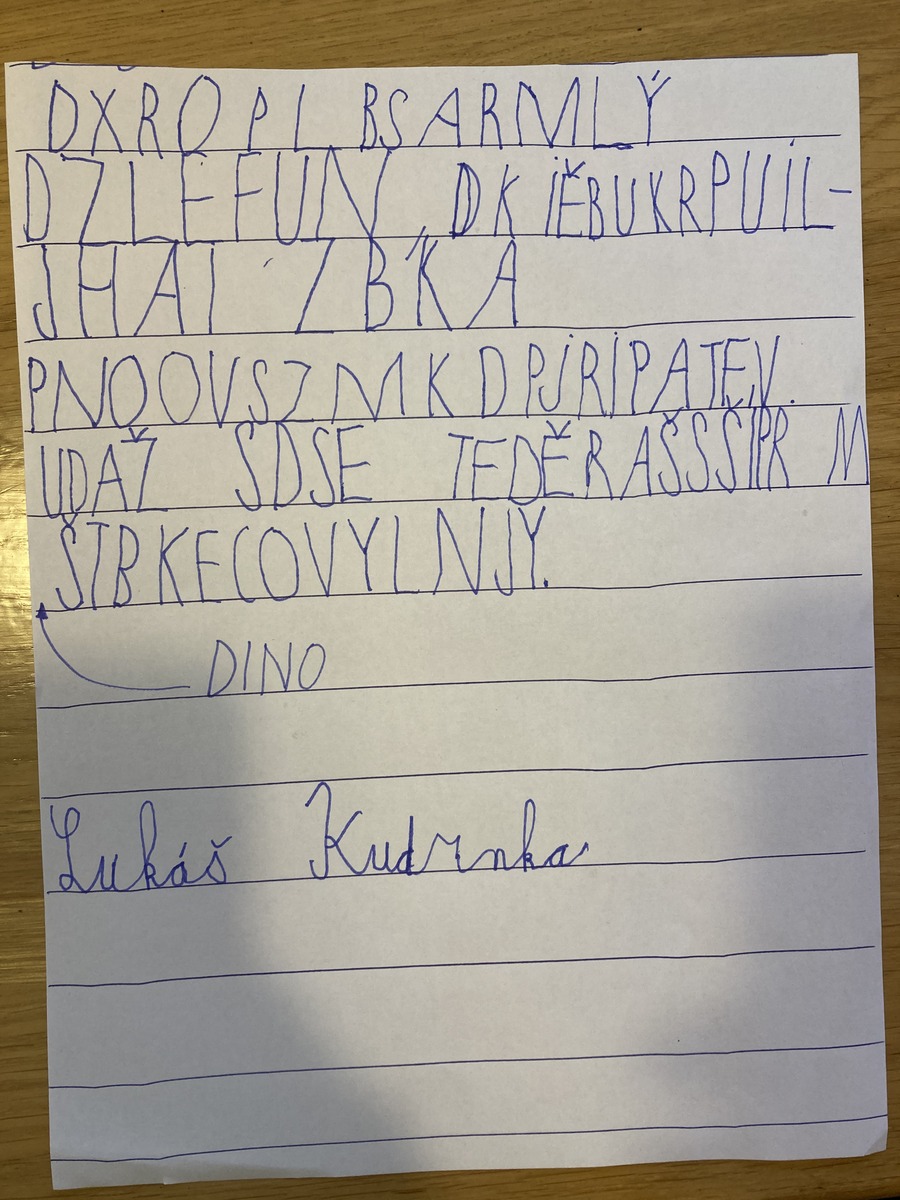 DXROPL BSARMLÝ
DZLEFUN, DK IĚBUKRPUIL-
JHAI ZBKA
PNOOVSZMK DPJRIPATEV
UDAŽ SDSE TEDĚRAŠSŠIPR M
ŠTBKECOVYLNJY.
DINO
Lukáš Kudrnka